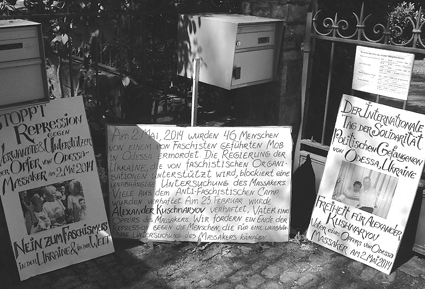 STOPPT
REPRESSION
GEGEN
VERWANDTE & UNTERSTÜTZER
DER OPFER VON ODESSA
MASSAKER AM 2. MAI 2014
NEIN ZUM FASCHISMUS
IN DER UKRAINE & IN DER WELT
AM 2. MAI, 2014 WURDEN 46 MENSCHEN
VON EINEM VON FASCHISTEN GEFÜHRTEN MOB
IN ODESSA ERMORDET. DIE REGIERUNG DER
UKRAINE, DIE VON FASCHISTISCHEN ORGANI-
SATIONEN UNTERSTÜTZT WIRD, BLOCKIERT EINE
UNABHÄNGIGE UNTERSUCHUNG DES MASSAKERS.
VIELE AUS DEM ANTI-FASCHISTISCHEN CAMP
WURDEN VERHAFTET. AM 23. FEBRUAR WURDE
ALEXANDER KUSHNARYOV VERHAFTET, VATER EINES
OPFERS. WIR FORDERN EIN ENDE DER
REPRESSION GEGEN DIE MENSCHEN, DIE FÜR EINE UNABHÄN-
UNTERSUCHUNG DES MASSAKERS KÄMPFEN.
DER INTERNATIONALE
TAG DER SOLIDARITÄT
MIT
POLITISCHEN GEFANGENEN
VON ODESSA, UKRAINE
FREIHEIT FÜR ALEXANDER
KUSHNARYOV
VATER EINES OPFERS VON ODESSA
MASSAKER AM 2. MAI 2014